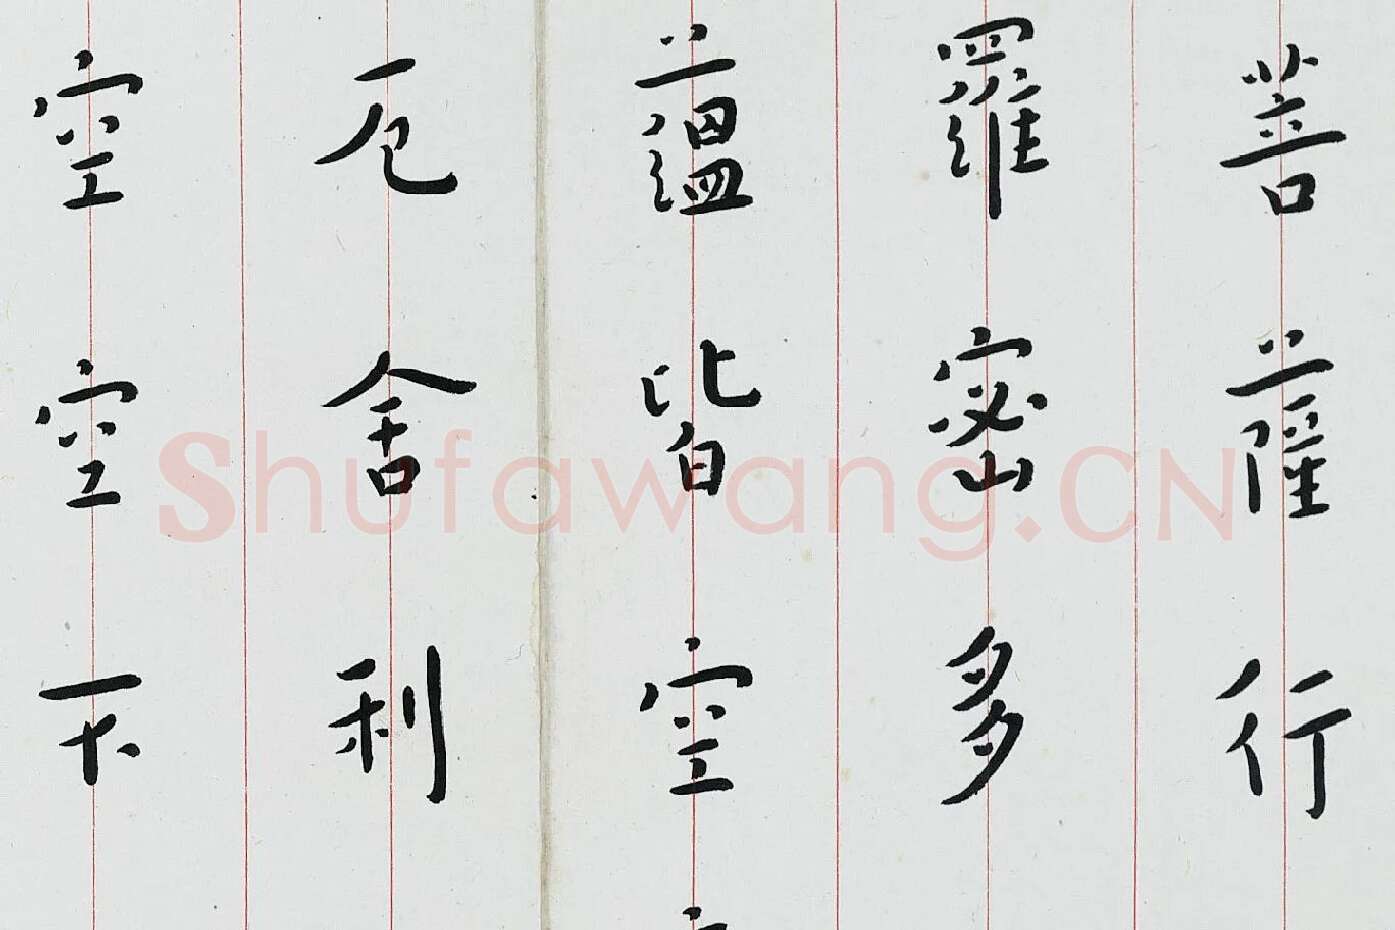 菩薩行
羅蜜多
蘊皆空
厄舍利
空空不
Shufawang.CN